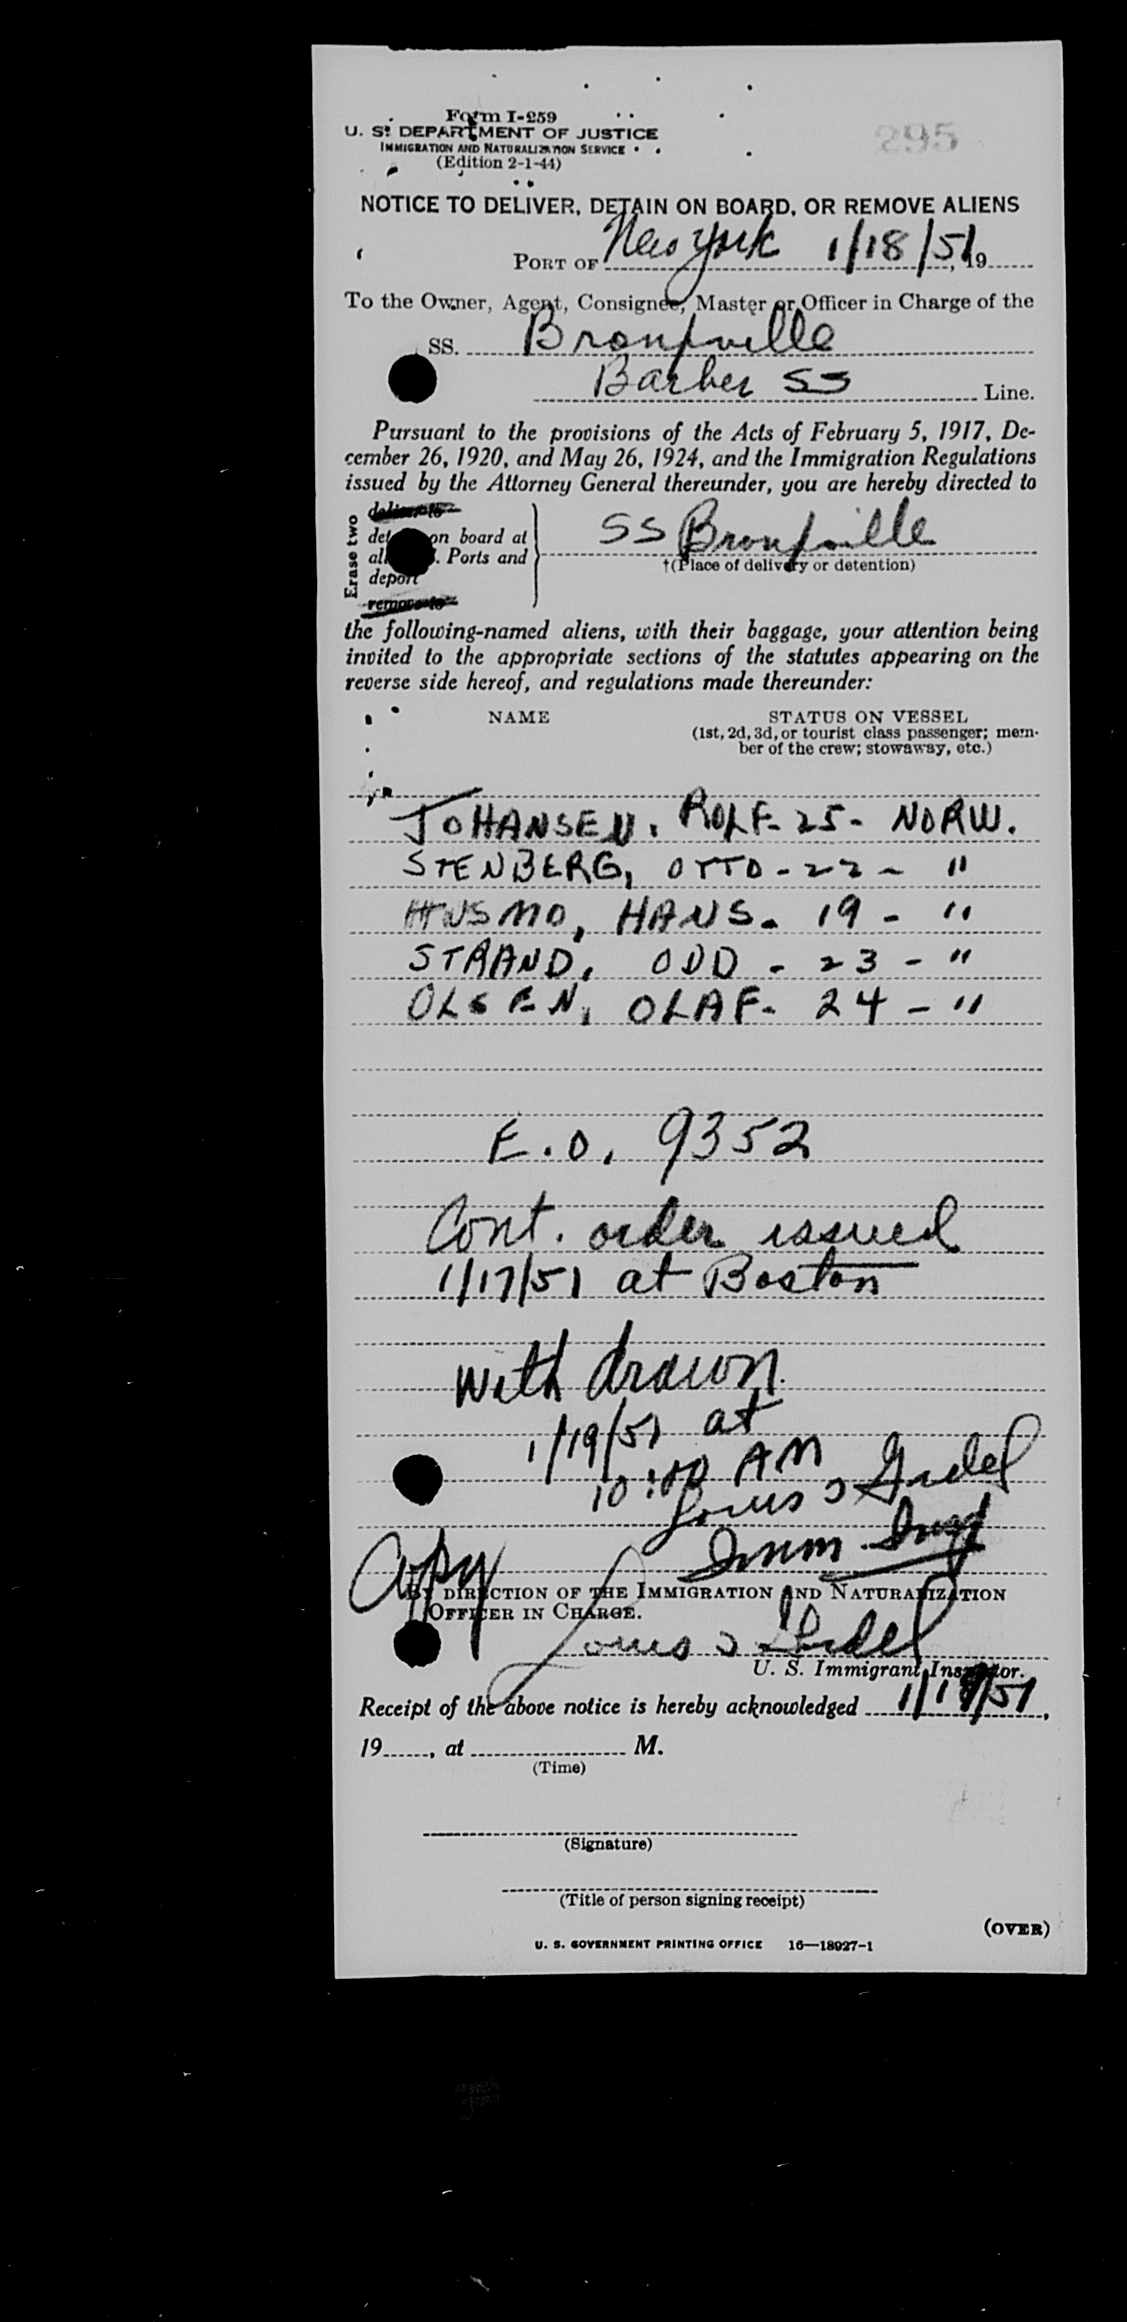 Form I-259
U. S. DEPARTMENT OF JUSTICE
IMMIGRATION AND NATURALIZATION SERVICE
(Edition 2-1-44)
295
NOTICE TO DELIVER, DETAIN ON BOARD, OR REMOVE ALIENS
PORT OF New York 1/18/51, 19
To the Owner, Agent, Consignee, Master or Officer in Charge of the
SS. Bronxville
Barber SS Line.
Pursuant to the provisions of the Acts of February 5, 1917, De-
cember 26, 1920, and May 26, 1924, and the Immigration Regulations
issued by the Attorney General thereunder, you are hereby directed to
Erase two
deliver to
on board at
Ports and
deport
remove to
SS Bronxville
†(Place of delivery or detention)
the following-named aliens, with their baggage, your attention being
invited to the appropriate sections of the statutes appearing on the
reverse side hereof, and regulations made thereunder:
NAME STATUS ON VESSEL
(1st, 2d, 3d, or tourist class passenger; mem-
ber of the crew; stowaway, etc.)
JOHANSEN, ROLF - 25 - NORW.
STENBERG, OTTO - 22 - "
HUSMO, HANS - 19 - "
STRAND, ODD - 23 - "
OLSEN, OLAF - 24 - "
E.O. 9352
Cont. order issued
1/17/51 at Boston
With drawn
1/19/51 at
10:00 AM
Louis
Imm. Insp
Copy
BY DIRECTION OF THE IMMIGRATION AND NATURALIZATION
OFFICER IN CHARGE.
Louis
U. S. Immigrant Inspector.
Receipt of the above notice is hereby acknowledged
19, at M.
(Time)
(Signature)
(Title of person signing receipt)
(OVER)
U. S. GOVERNMENT PRINTING OFFICE 16—18927-1